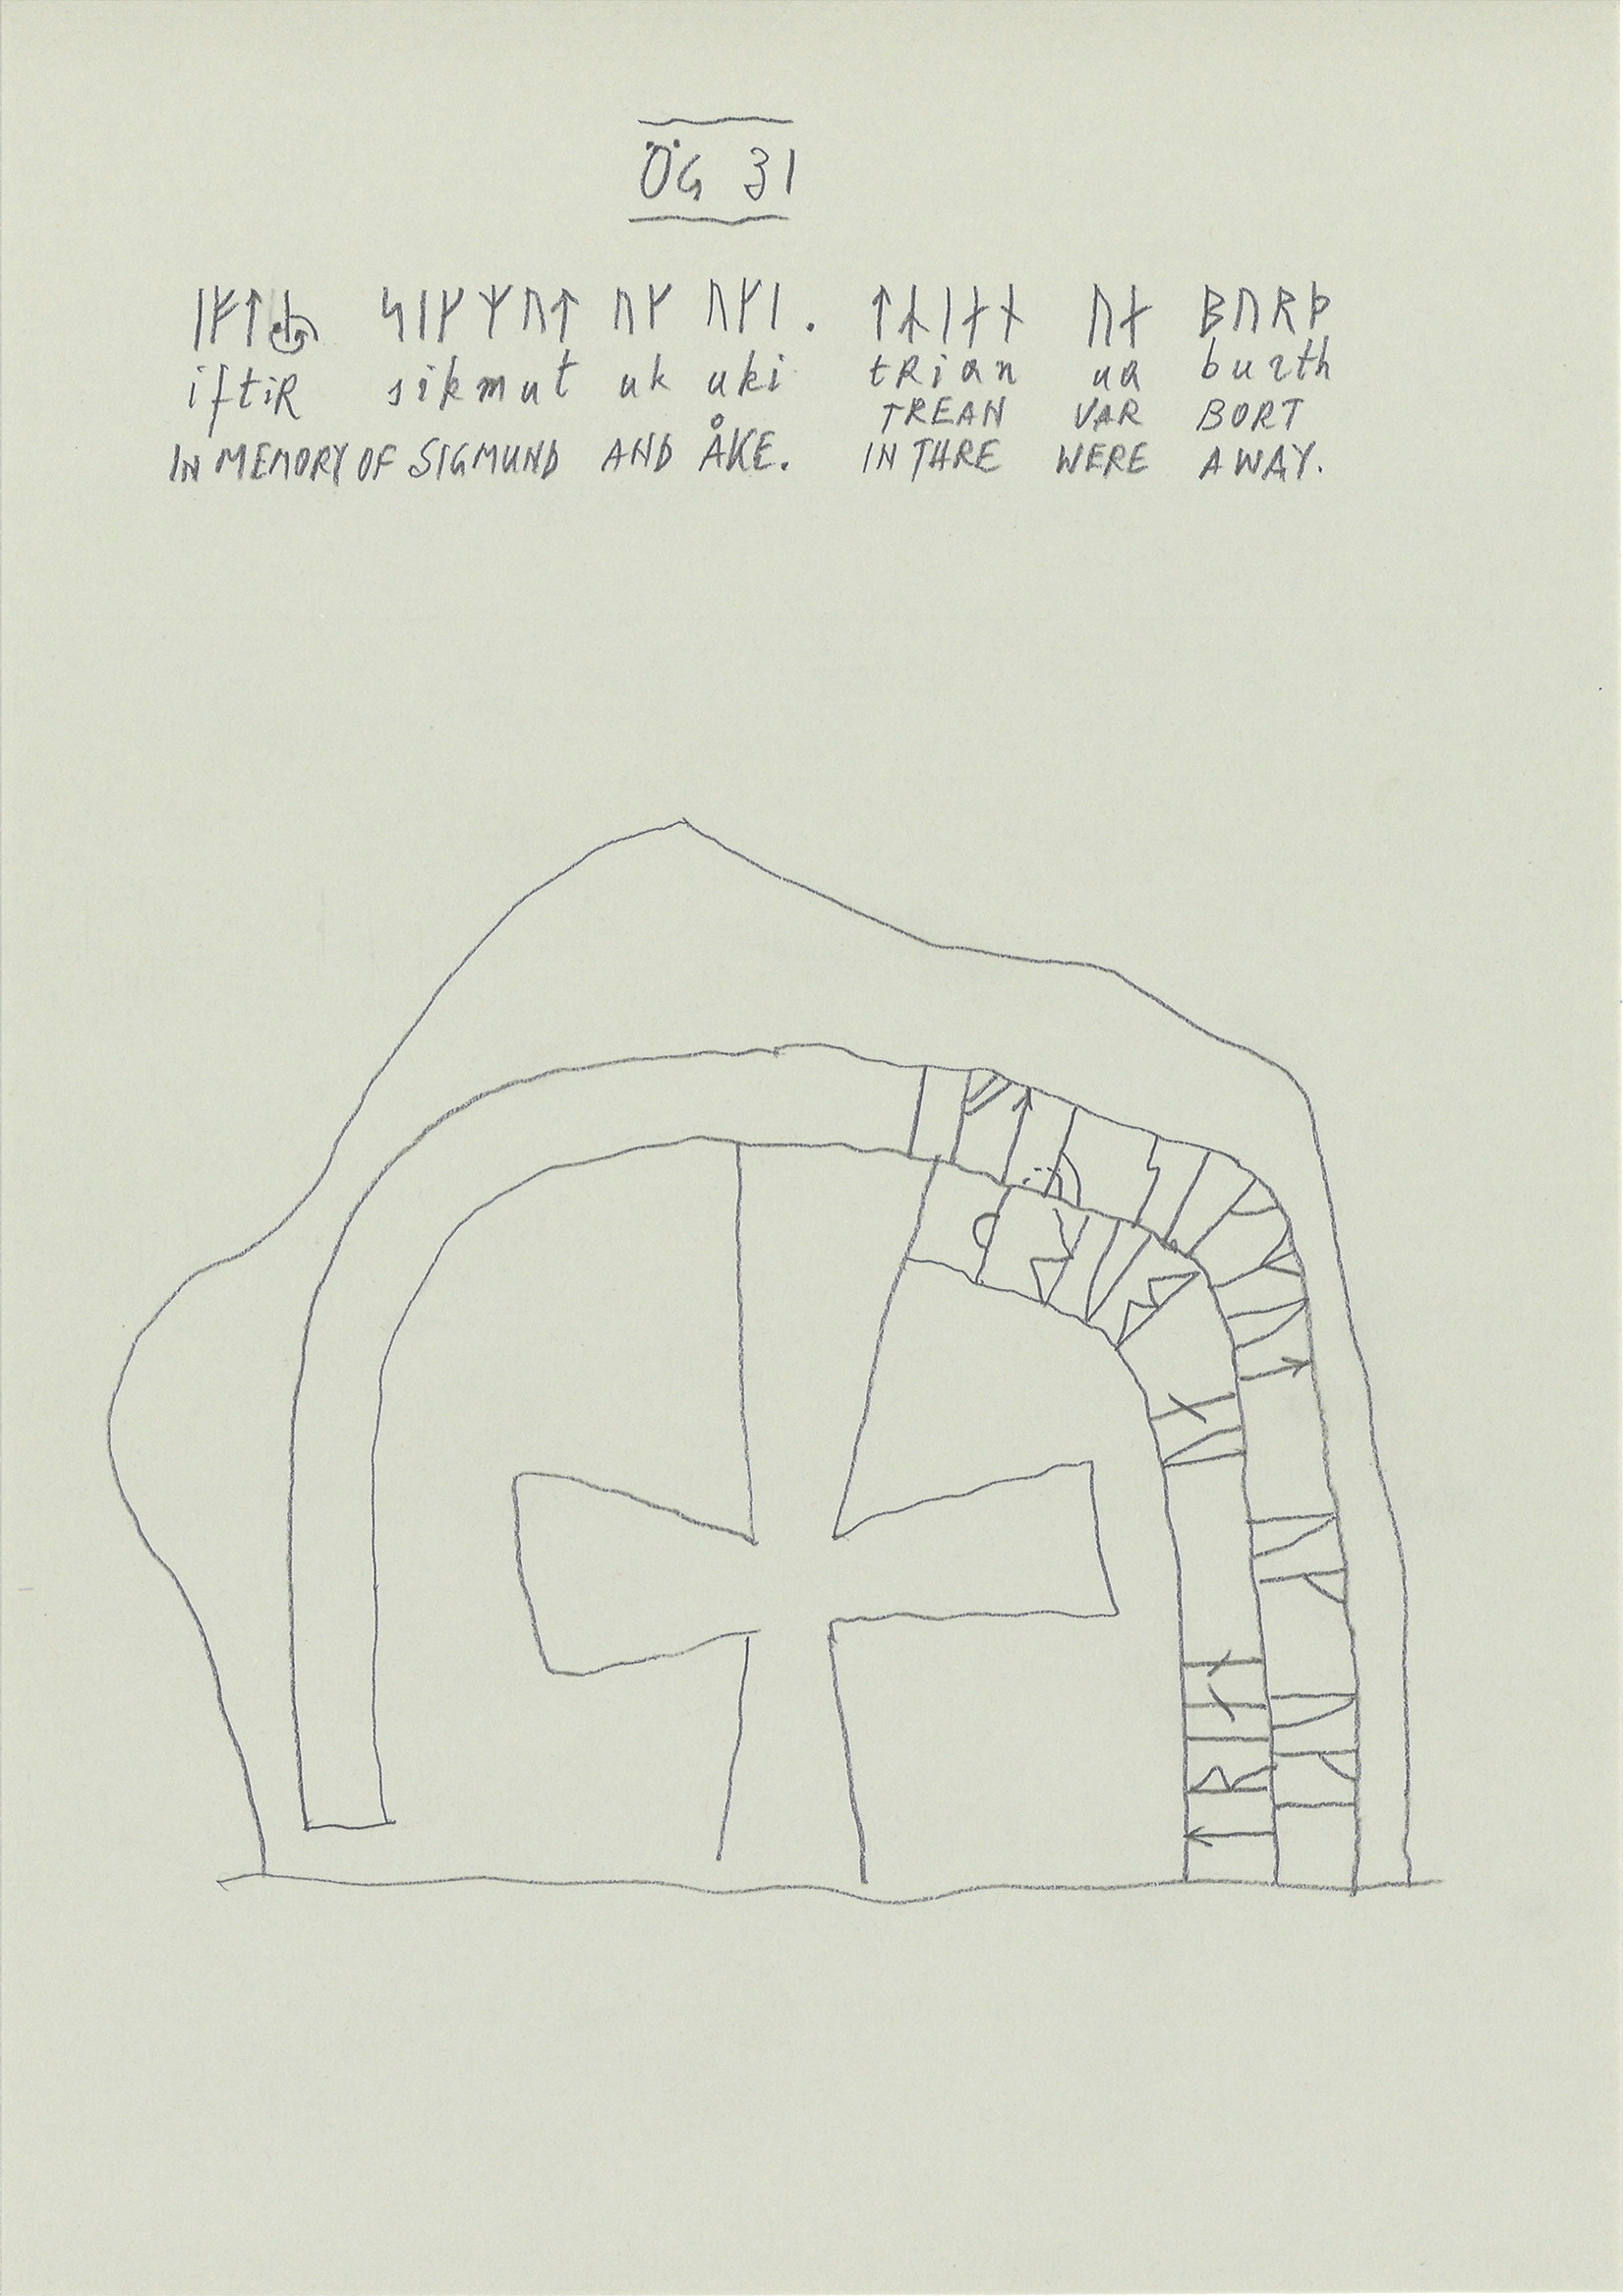 ÖG 31
ᛁᚠᛏᛁᛦ ᛋᛁᚴᛘᚢᛏ ᚢᚴ ᚢᚴᛁ. ᛏᛦᛁᛅᚾ ᚢᛅ ᛒᚢᚱᚦ
iftiR sikmut uk uki tRian ua burth
TREAN VAR BORT
IN MEMORY OF SIGMUND AND ÅKE. IN THRE WERE AWAY.